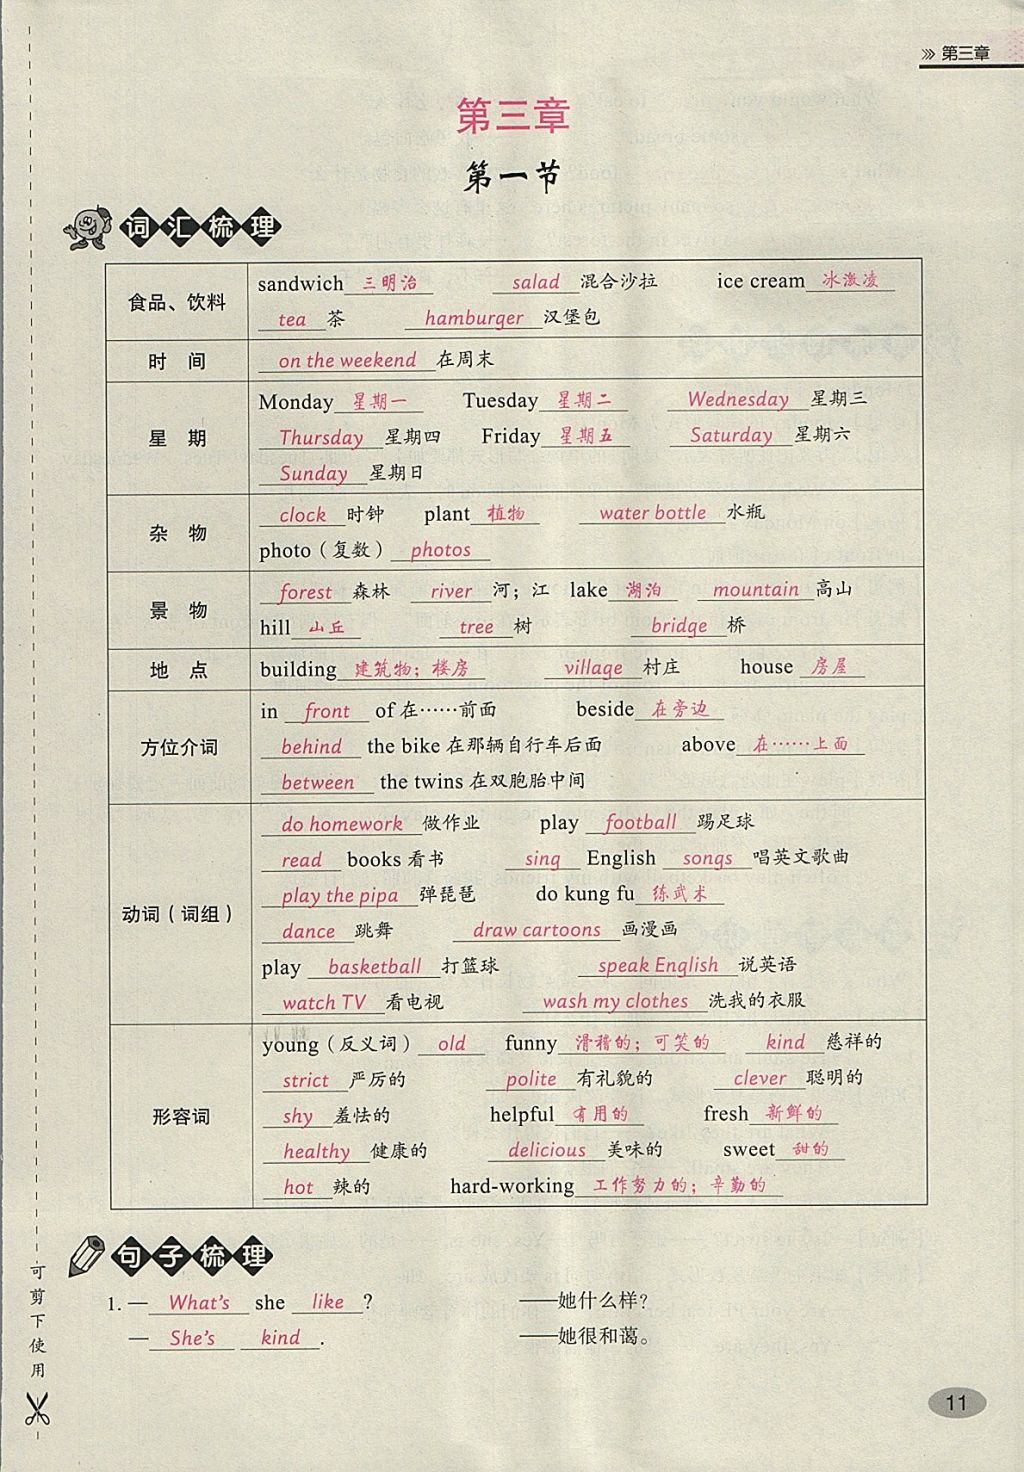 第三章
第三章
第一节
词汇梳理
食品、饮料
sandwich 三明治 salad 混合沙拉 ice cream 冰激凌
tea 茶 hamburger 汉堡包
时 间
on the weekend 在周末
星 期
Monday 星期一 Tuesday 星期二 Wednesday 星期三
Thursday 星期四 Friday 星期五 Saturday 星期六
Sunday 星期日
杂 物
clock 时钟 plant 植物 water bottle 水瓶
photo（复数） photos
景 物
forest 森林 river 河；江 lake 湖泊 mountain 高山
hill 山丘 tree 树 bridge 桥
地 点
building 建筑物；楼房 village 村庄 house 房屋
方位介词
in front of 在……前面 beside 在旁边
behind the bike 在那辆自行车后面 above 在……上面
between the twins 在双胞胎中间
动词（词组）
do homework 做作业 play football 踢足球
read books 看书 sing English songs 唱英文歌曲
play the pipa 弹琵琶 do kung fu 练武术
dance 跳舞 draw cartoons 画漫画
play basketball 打篮球 speak English 说英语
watch TV 看电视 wash my clothes 洗我的衣服
形容词
young（反义词） old funny 滑稽的；可笑的 kind 慈祥的
strict 严厉的 polite 有礼貌的 clever 聪明的
shy 羞怯的 helpful 有用的 fresh 新鲜的
healthy 健康的 delicious 美味的 sweet 甜的
hot 辣的 hard-working 工作努力的；辛勤的
句子梳理
1. — What's she like ? ——她什么样？
— She's kind . ——她很和蔼。
可剪下使用
11